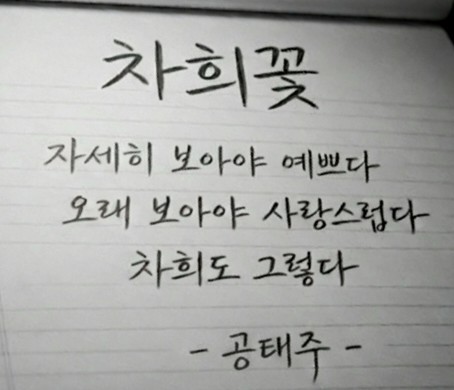 차희꽃
자세히 보아야 예쁘다
오래 보아야 사랑스럽다
차희도 그렇다
- 공태주 -